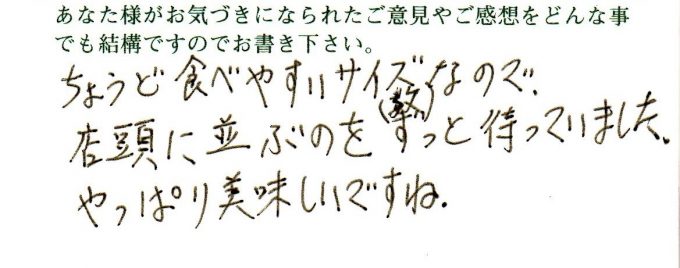 あなた様がお気づきになられたご意見やご感想をどんな事
でも結構ですのでお書き下さい。
ちょうど食べやすいサイズなので、
店頭に並ぶのをずっと待っていました。
やっぱり美味しいですね。